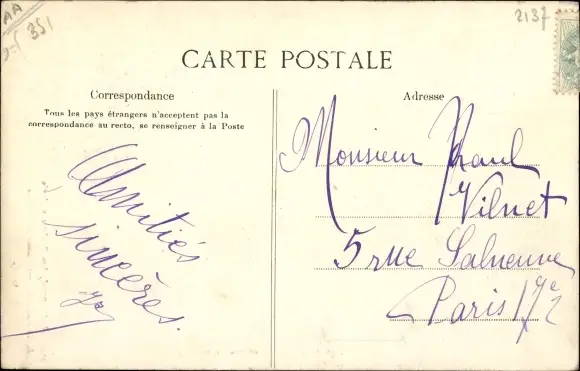 AA
351
2137
CARTE POSTALE
Correspondance
Tous les pays étrangers n'acceptent pas la
correspondance au recto, se renseigner à la Poste
Amitiés
sincères.
Adresse
Monsieur Paul
Vilnet
5 rue Salneuve
Paris 17e